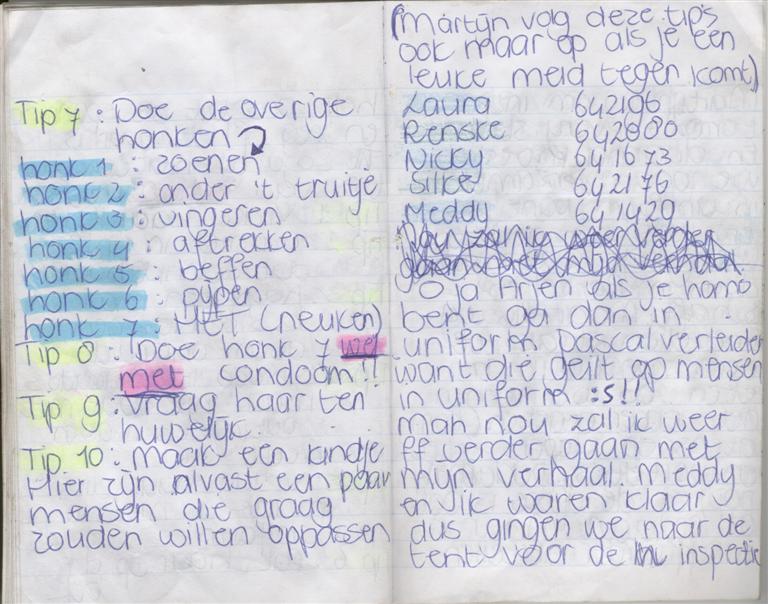 Tip 7 : Doe de overige
honken
honk 1 : zoenen
honk 2 : onder 't truitje
honk 3 : vingeren
honk 4 : aftrekken
honk 5 : beffen
honk 6 : pijpen
honk 7 : HET (neuken)
Tip 8 : Doe honk 7 wel
met condoom!!
Tip 9 : Vraag haar ten
huwelijk.
Tip 10 : maak een kindje
Hier zijn alvast een paar
mensen die graag
zouden willen oppassen
(Martijn volg deze tips
ook maar op als je een
leuke meid tegen komt)
Laura 642196
Renske 642800
Nicky 641673
Silke 642176
Meddy 641429
Nou zal ik weer verder
gaan met mijn verhaal.
O ja Arjen als je homo
bent ga dan in
uniform Pascal verleiden
want die geilt op mensen
in uniform :S!!
man nou zal ik weer
ff verder gaan met
mijn verhaal. Meddy
en ik waren klaar
dus gingen we naar de
tent voor de inspectie